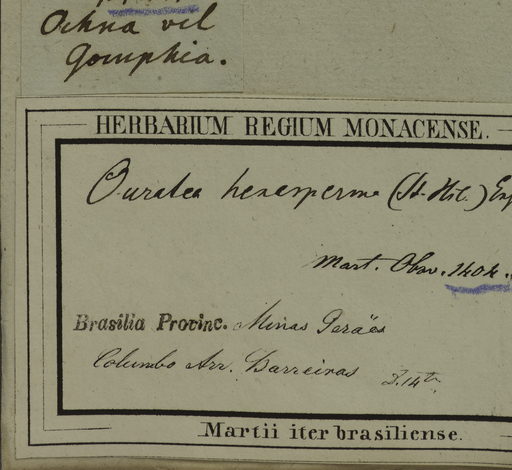 Ochna vel
Gomphia.
HERBARIUM REGIUM MONACENSE.
Ouratea hexasperma (St. Hil.)
Mart. Obsv. 1404.
Brasilia Provinc. Minas Geräes
Columbo Arr. Barreiras
Martii iter brasiliense.